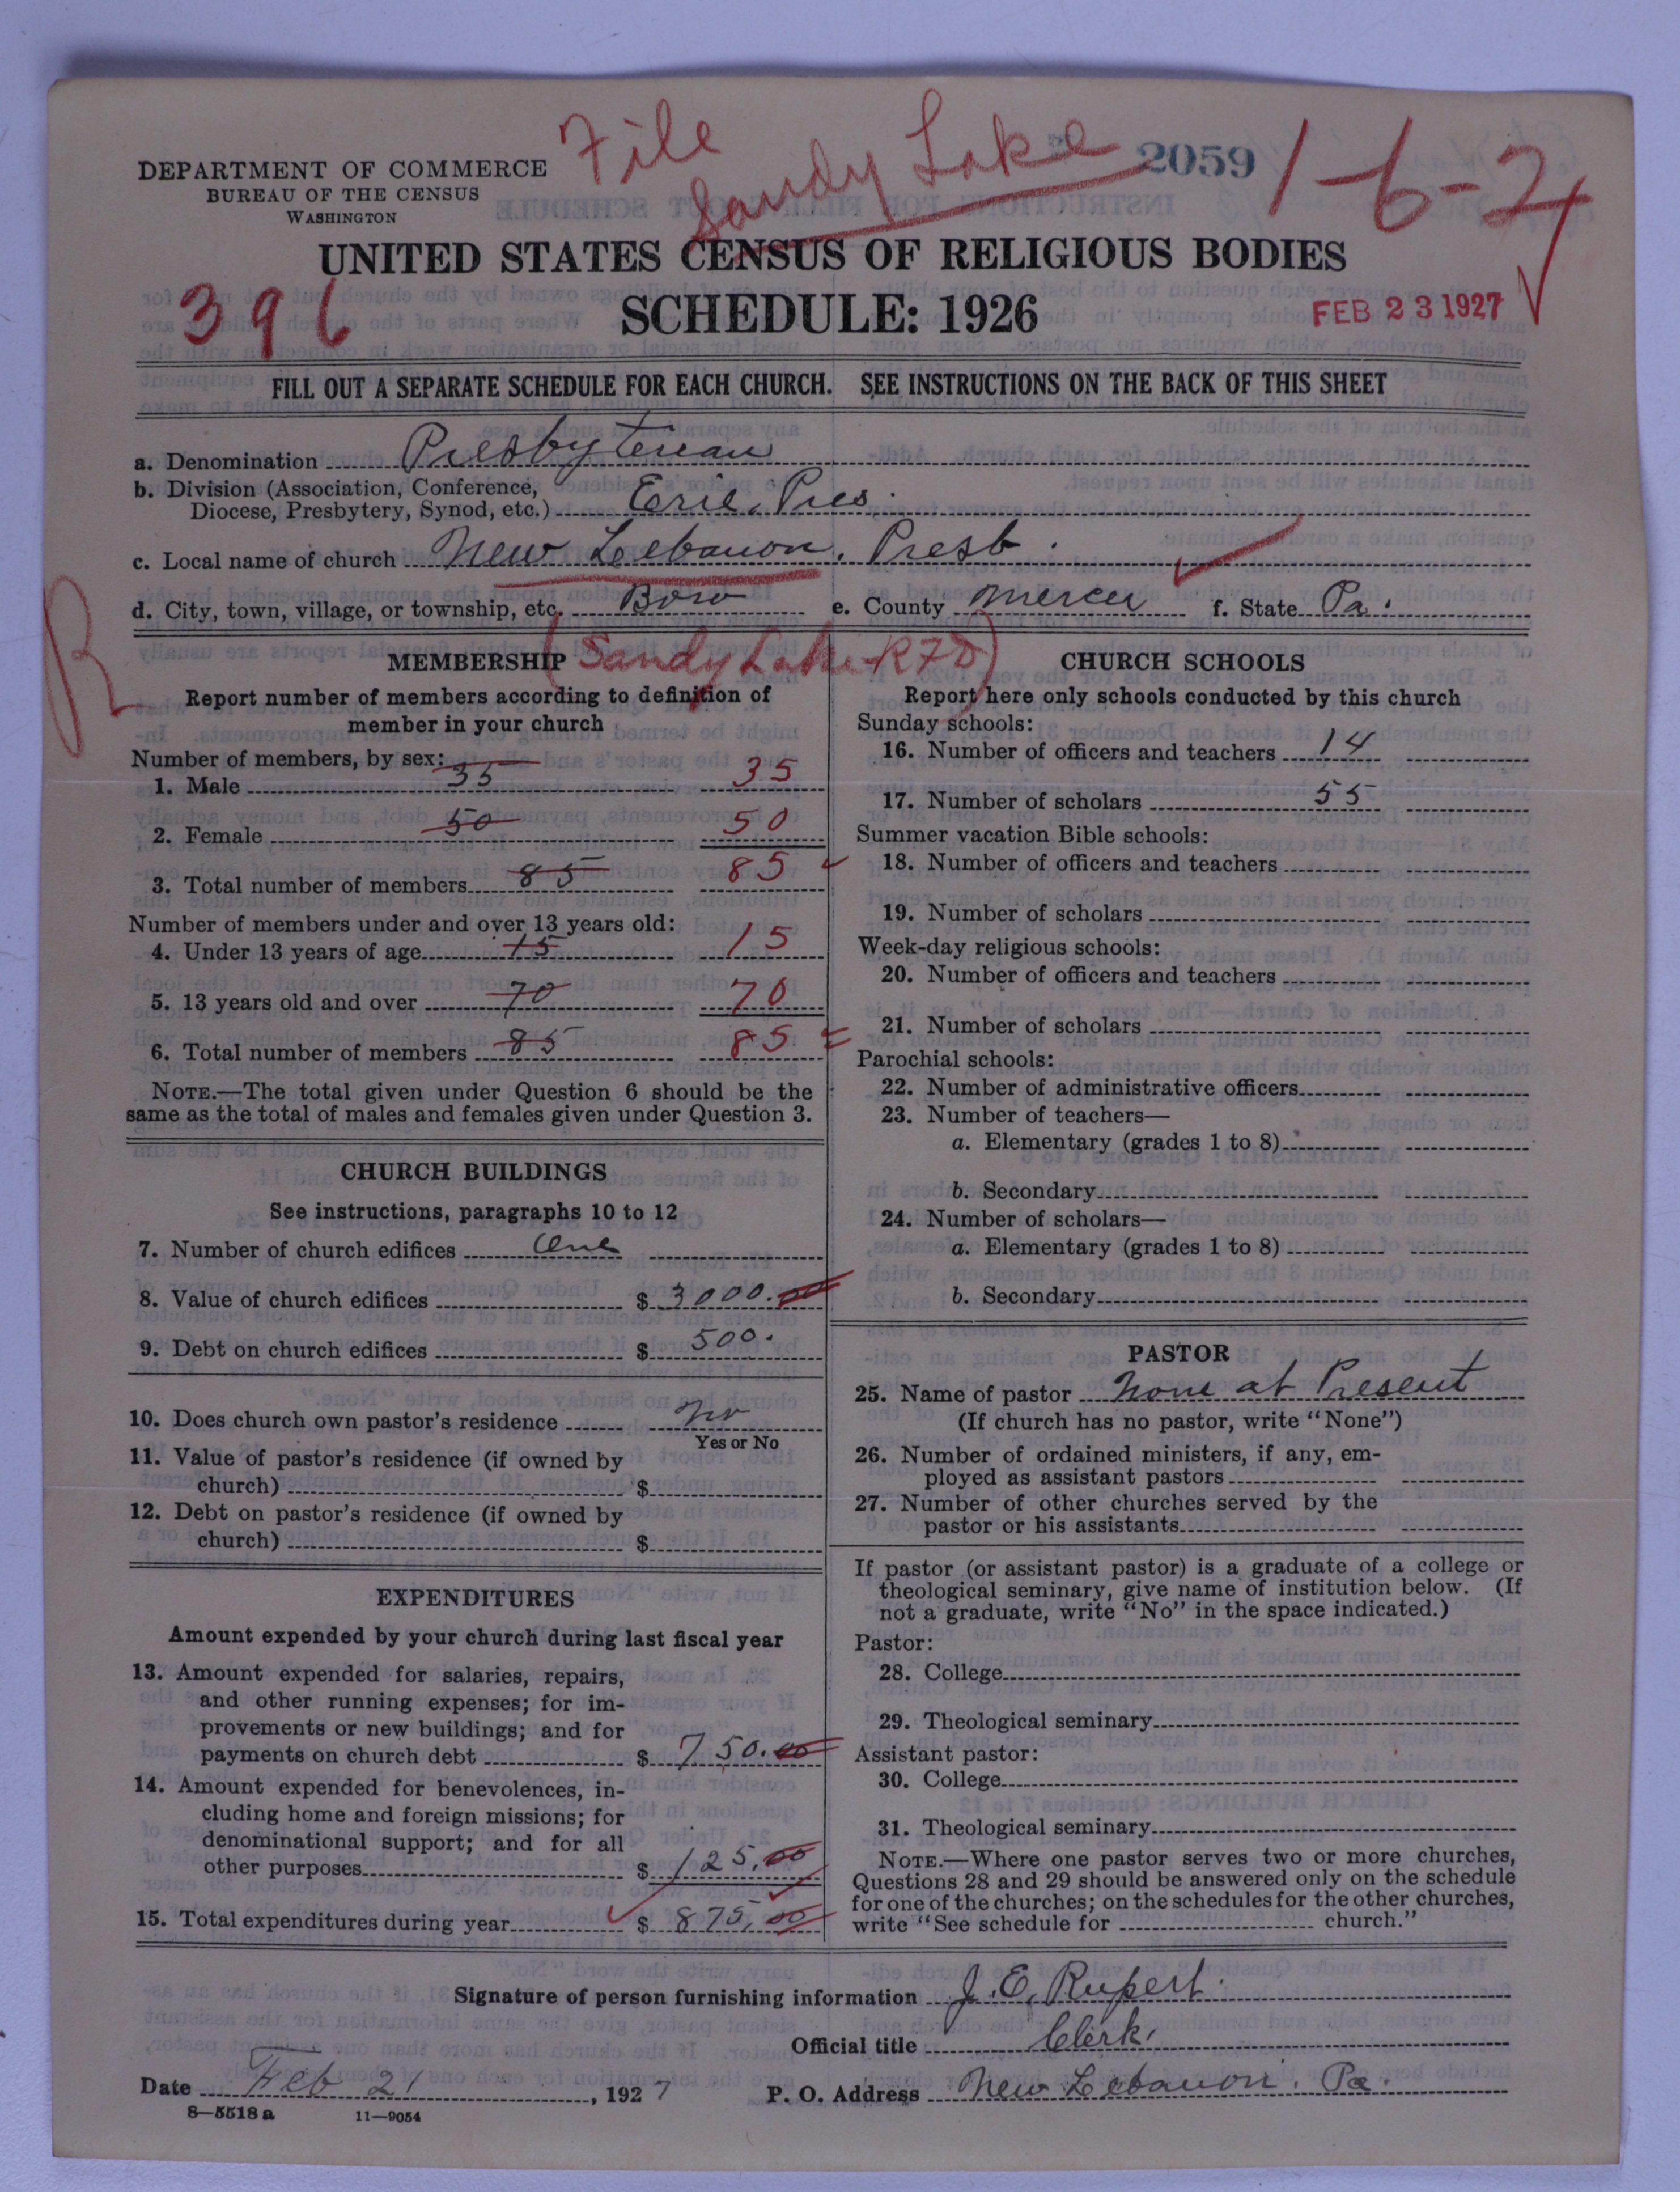 File
Sandy Lake
2059
1-6-2
DEPARTMENT OF COMMERCE
BUREAU OF THE CENSUS
WASHINGTON
UNITED STATES CENSUS OF RELIGIOUS BODIES
396
SCHEDULE: 1926
FEB 23 1927
FILL OUT A SEPARATE SCHEDULE FOR EACH CHURCH. SEE INSTRUCTIONS ON THE BACK OF THIS SHEET
a. Denomination Presbyterian
b. Division (Association, Conference,
Diocese, Presbytery, Synod, etc.) Erie. Pres.
c. Local name of church New Lebanon. Presb.
d. City, town, village, or township, etc. Boro e. County Mercer f. State Pa.
R
(Sandy Lake R7D)
MEMBERSHIP
Report number of members according to definition of
member in your church
Number of members, by sex:
1. Male 35 35
2. Female 50 50
3. Total number of members 85 85
Number of members under and over 13 years old:
4. Under 13 years of age 15 15
5. 13 years old and over 70 70
6. Total number of members 85 85
NOTE.—The total given under Question 6 should be the
same as the total of males and females given under Question 3.
CHURCH BUILDINGS
See instructions, paragraphs 10 to 12
7. Number of church edifices One
8. Value of church edifices $ 3000.00
9. Debt on church edifices $ 500.
10. Does church own pastor's residence No
Yes or No
11. Value of pastor's residence (if owned by
church) $
12. Debt on pastor's residence (if owned by
church) $
EXPENDITURES
Amount expended by your church during last fiscal year
13. Amount expended for salaries, repairs,
and other running expenses; for im-
provements or new buildings; and for
payments on church debt $ 750.00
14. Amount expended for benevolences, in-
cluding home and foreign missions; for
denominational support; and for all
other purposes $ 125.00
15. Total expenditures during year $ 875.00
CHURCH SCHOOLS
Report here only schools conducted by this church
Sunday schools:
16. Number of officers and teachers 14
17. Number of scholars 55
Summer vacation Bible schools:
18. Number of officers and teachers
19. Number of scholars
Week-day religious schools:
20. Number of officers and teachers
21. Number of scholars
Parochial schools:
22. Number of administrative officers
23. Number of teachers—
a. Elementary (grades 1 to 8)
b. Secondary
24. Number of scholars—
a. Elementary (grades 1 to 8)
b. Secondary
PASTOR
25. Name of pastor None at Present
(If church has no pastor, write "None")
26. Number of ordained ministers, if any, em-
ployed as assistant pastors
27. Number of other churches served by the
pastor or his assistants
If pastor (or assistant pastor) is a graduate of a college or
theological seminary, give name of institution below. (If
not a graduate, write "No" in the space indicated.)
Pastor:
28. College
29. Theological seminary
Assistant pastor:
30. College
31. Theological seminary
NOTE.—Where one pastor serves two or more churches,
Questions 28 and 29 should be answered only on the schedule
for one of the churches; on the schedules for the other churches,
write "See schedule for church."
Signature of person furnishing information J. E. Rupert.
Official title Clerk.
Date Feb 21, 1927 P. O. Address New Lebanon. Pa.
8—5518 a 11—9054